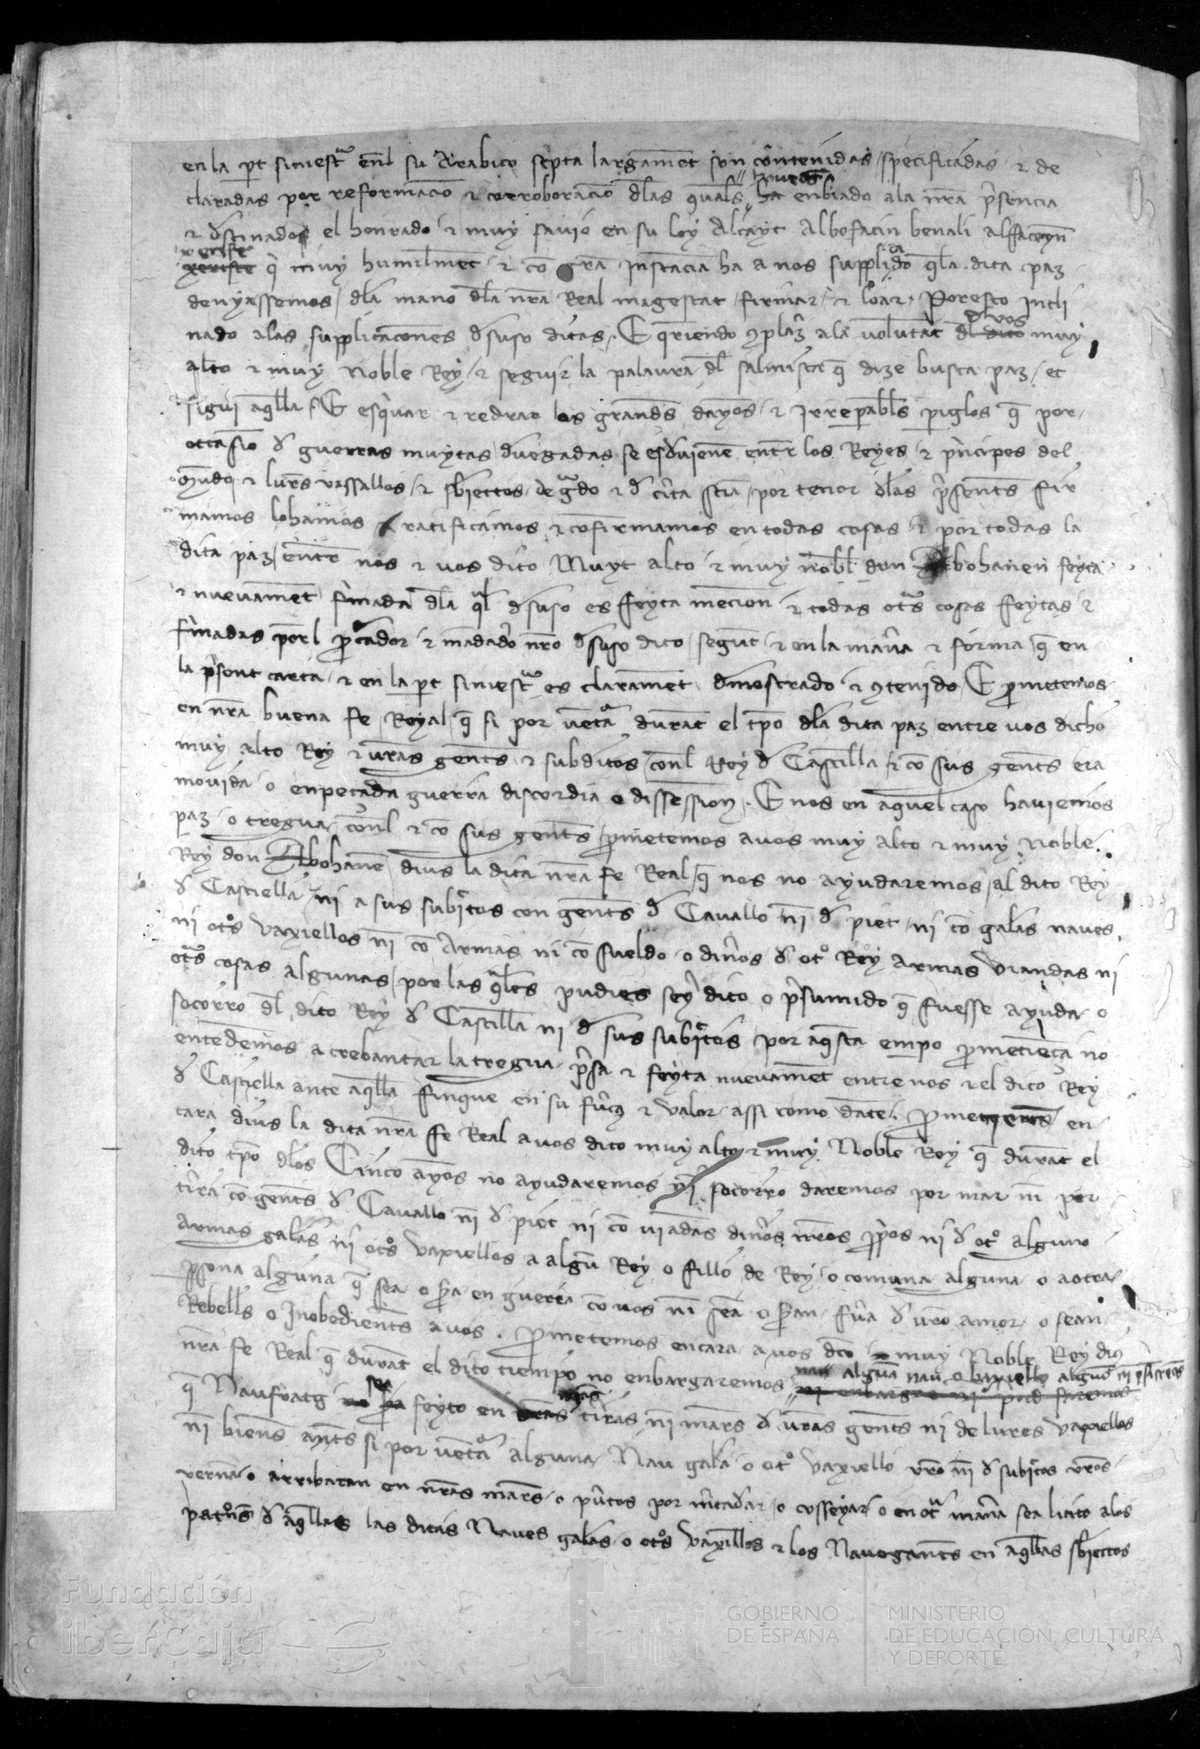 en la pt sinestª enl su Arabico scpta largamēt son contenidas specificadas ⁊ de
claradas por reformacio ⁊ corroboracio dlas quals haveds ha enbiado a la nrā p̄sencia
⁊ dstinado el honrado ⁊ muy savio en su ley Alcayt Albofacin benali alfaceyn
xerife xerifte q̄ muy humilmēt ⁊ cō grā instancia ha a nos supplicado q̄la dita paz
denyassemos dla mano dla nrā Real magestat firmar ⁊ loar Por esto incli
nado alas supplicacones dsuso ditas. E q̄riendo ɔplaz̄ ala voluntat dl dito de vos muy
alto ⁊ muy Noble Rey ⁊ seguir la palaura dl salmista q̄ dize busca paz et
sigui aq̄lla E esquar ⁊ redrar los grands dayos ⁊ irrepabls piglos q̄ por
occasio d guerras muytas dvegadas se esdvienē entr los Reyes ⁊ p̄ncipes del
mūdo ⁊ lurs vassallos ⁊ sbiectos de gªdo ⁊ d c̄ta sciā por tenor dlas p̄sents fir
mamos lohamos ratificamos ⁊ cōfirmamos en todas cosas ⁊ por todas la
dita paz entr nos ⁊ vos dito Muyt alto ⁊ muy nobl don Abohanen feyta
⁊ nuevamēt fⁱmada dla q̄l dsuso es ffeyta mencion ⁊ todas otªs cosas feytas ⁊
fⁱmadas porl p̄cªdor ⁊ mādado nrō dsuso dito segūt ⁊ en la man̄a ⁊ forma q̄ en
la p̄sent carta ⁊ en la pt sinestª es claramēt dmostrado ⁊ ɔtenido E p̄metemos
en nrā buena fe Reyal q̄ si por vētª durāt el tp̄o dla dita paz entre vos dicho
muy alto Rey ⁊ vrās gents ⁊ subditos conl Rey d Castilla ⁊ cō sus gents era
movida o enpeçada guerra discordia o dissession. E nos en aquel caso haviemos
paz o tregua conl ⁊ cō sus gents p̄metemos avos muy alto ⁊ muy Noble
Rey don Abohanē dius la dita nrā fe Real q̄ nos no ayudaremos al dito Rey
d Castiella ni a sus subiᶜtos con gents d Cavallo nī d piet ni cō galas naves
ni otºs vaxiellos nī cō armas ni cō sueldo o din̄os d otº Rey armas viandas ni
otªs cosas algunas por las q̄ls pudies sey dito o p̄sumido q̄ fuesse ayuda o
socorro dl dito Rey d Castilla ni d sus subiᶜtos por aq̄sta empo p̄metieça no
entēdemos a crebantar la tregua p̄sa ⁊ feyta nuevamēt entre nos ⁊ el dito Rey
d Castiella ante aq̄lla finque en su fuerç ⁊ valor assi como dāte. P̄metemos en
cara dius la dita nrā ffe Real avos dito muy alto ⁊ muy Noble Rey q̄ durāt el
dito tp̄o dlos Cinco ayos no ayudaremos ni socorro daremos por mar nī por
tⁱra cō gents d Cavallo nī d piet ni cō viādas din̄os nrōs pp̄os ni d otº alguno
armas galas ni otºs vaxiellos a algū Rey o fillo de Rey o comuna alguna o a otra
p̄sona alguna q̄ sea o sⁱa en guerra cō vos nī sea o sⁱan fūa d vrō amor o sean
Rebells o Inobedients avos. P̄metemos encara avos dtō muy Noble Rey dius
nrā fe Real q̄ durāt el dito tiempo no enbargaremos nau alguna nau o vaxiello alguō ni pⁱsaremos
q̄ Naufratg no sea feyto en nrās vrās tⁱras ni mars d vrās gents ni de lures vaxiellos
ni biens ants si por vētª alguna Nau gala o otº vaxiello vrō nī d subiᶜtos vrōs
vernā o arribaran en nrās mars o p̄tos por m̄cadar o cosseyar o en otª man̄a sea licito alos
patºns d aq̄llas las ditas Naves galas o otºs vaxillos ⁊ los Navegants en aq̄llas sbiectos
Fundación
iberCaja
GOBIERNO
DE ESPAÑA
MINISTERIO
DE EDUCACIÓN, CULTURA
Y DEPORTE